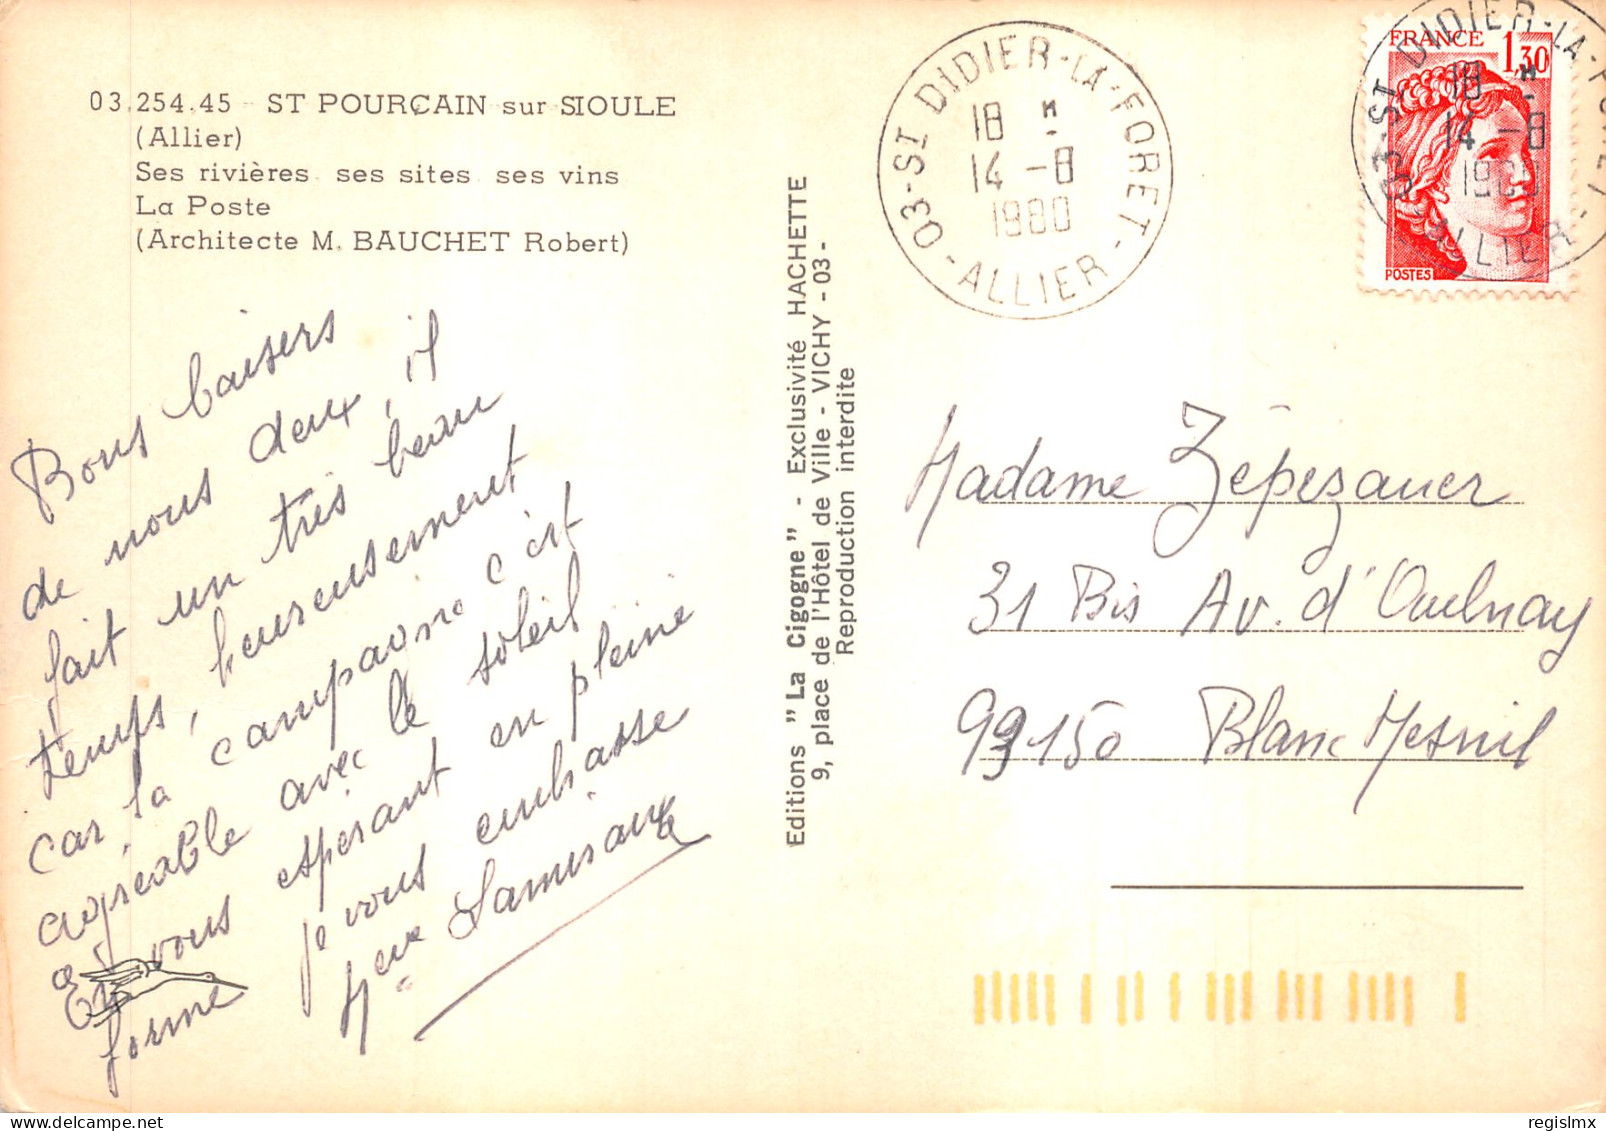 03.254.45 - ST POURÇAIN sur SIOULE
(Allier)
Ses rivières ses sites ses vins
La Poste
(Architecte M. BAUCHET Robert)
Bons baisers
de nous deux, il
fait un très beau
temps, heureusement
car la campagne c'est
agréable avec le soleil
En vous espérant en pleine
forme je vous embrasse
Mme
Editions "La Cigogne" - Exclusivité HACHETTE
9, place de l'Hôtel de Ville - VICHY - 03 -
Reproduction interdite
03-ST DIDIER-LA-FORET-
18 H
14 -8
1980
-ALLIER-
FRANCE 1,30
POSTES
03-ST DIDIER-LA-FORET-
18 H
14 -8
1980
ALLIER
Madame Zépezauer
31 Bis Av. d'Aulnay
93150 Blanc Mesnil
regislmx